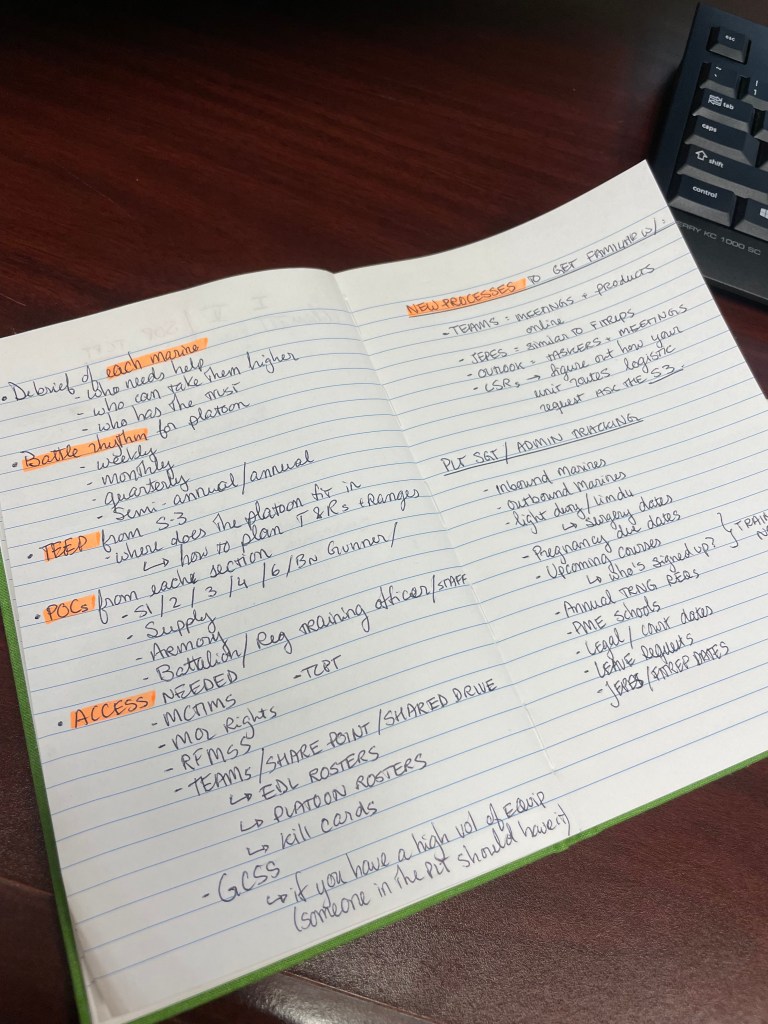 • Debrief of each marine
- who needs help
- who can take them higher
- who has the trust
• Battle rhythm for platoon
- weekly
- monthly
- quarterly
- Semi-annual/annual
• TEEP from S-3
- where does the platoon fit in
↳ how to plan T&Rs + Ranges
• POCs from each section
- S1/2/3/4/6/BN Gunner/
- Supply
- Armory
- Battalion/Reg training officer/STAFF
• ACCESS NEEDED
- MCTIMS
- TCPT
- MOL Rights
- RFMSS
- TEAMS/SHARE POINT/SHARED DRIVE
↳ EDL ROSTERS
↳ PLATOON ROSTERS
↳ Kill cards
- GCSS
↳ if you have a high vol of EQUIP
(someone in the PLT should have it)
NEW PROCESSES to GET FAMILIAR W/:
- TEAMS = MEETINGS + products
online
- JEPES = similar to FITREPS
- OUTLOOK = TASKERS + MEETINGS
- CSRs → figure out how your
unit routes logistic
request ASK THE S3.
PLT SGT/ADMIN TRACKING
- Inbound marines
- Outbound marines
- light duty/limdu
↳ surgery dates
- Pregnancy due dates
- Upcoming courses
↳ who's signed up?
- Annual TRNG REQs
- PME schools
- Legal/court dates
- Leave Requests
- JEPES/FITREP DATES
esc
tab
caps
shift
control
RRY KC 1000 SC